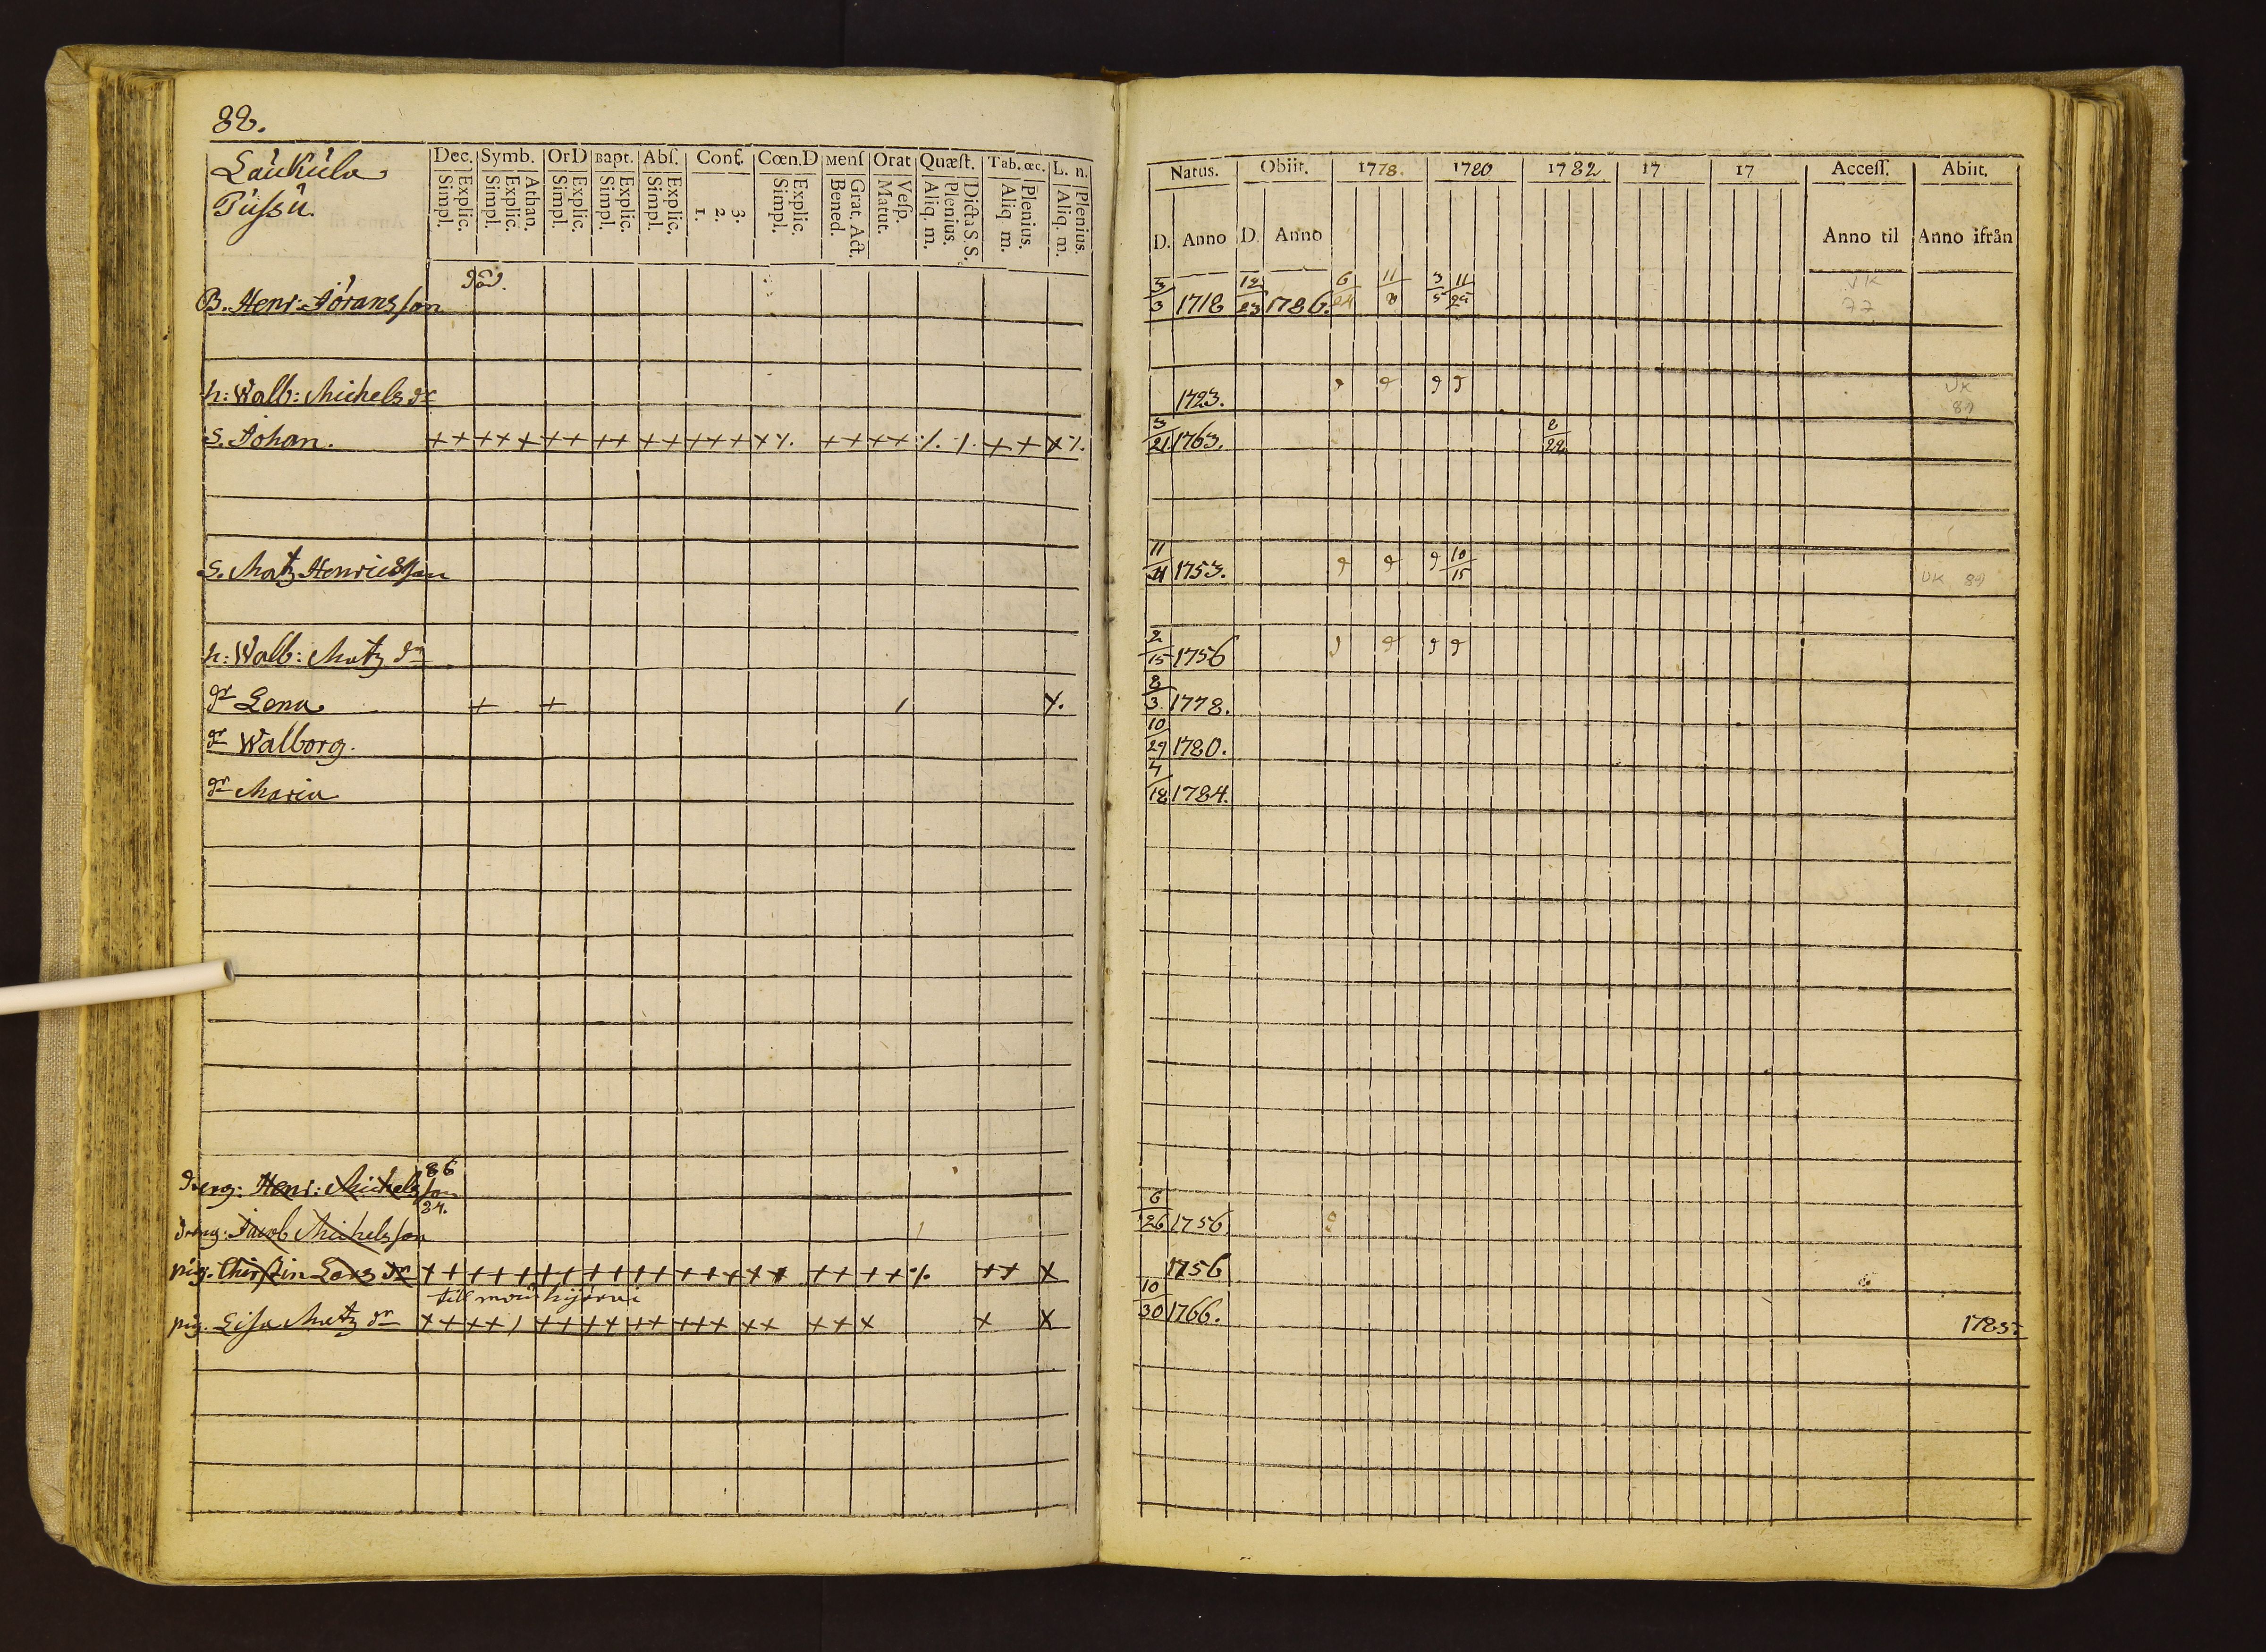 88.
Laukula
Pussu.
Dec. Symb. OrD Bapt. Abſ. Conf. Cœn.D Menſ Orat Quæſt. Tab. œc. L. n.
Explic. Simpl. Athan. Explic. Simpl. Explic. Simpl. Explic. Simpl. Explic. Simpl. 3. 2. 1. Explic. Simpl. Grat. Act. Bened. Veſp. Matut. Dicta S. S. Plenius. Aliq. m. Plenius. Aliq m. Plenius. Aliq. m.
död.
B. Henr: Jöransson
h: Walb: Michels dr
S. Johan. + + + + + + + + + + + + + + + % + + + + % % + + + %
S. Matz Henricsson
h: Walb: Matz dr
dr Lena + + / %
dr Walborg.
dr Maria
86
dreng: Henr: Michelsson
84.
dreng: Jacob Michelsson
pig. Chirstin Lars dr + + + + + + + + + + + + + + + + + + + + % + + +
till mouhijärvi
pig. Lisa Matz dr + + + + / + + + + + + + + + + + + + + + +
Natus. Obiit. 1778. 1780 1782 17 17 Acceſſ. Abiit.
D. Anno D. Anno Anno til Anno ifrån
3/3 1718 12/23 1786. 6/24 11/8 3/5 11/25 VK 77
1723. VK 89
3/21 1763. 2/22
11/21 1753. 10/15 VK 89
2/15 1756
8/3 1778.
10/29 1780.
4/18 1784.
6/26 1756.
1756
10/30 1766. 1785.